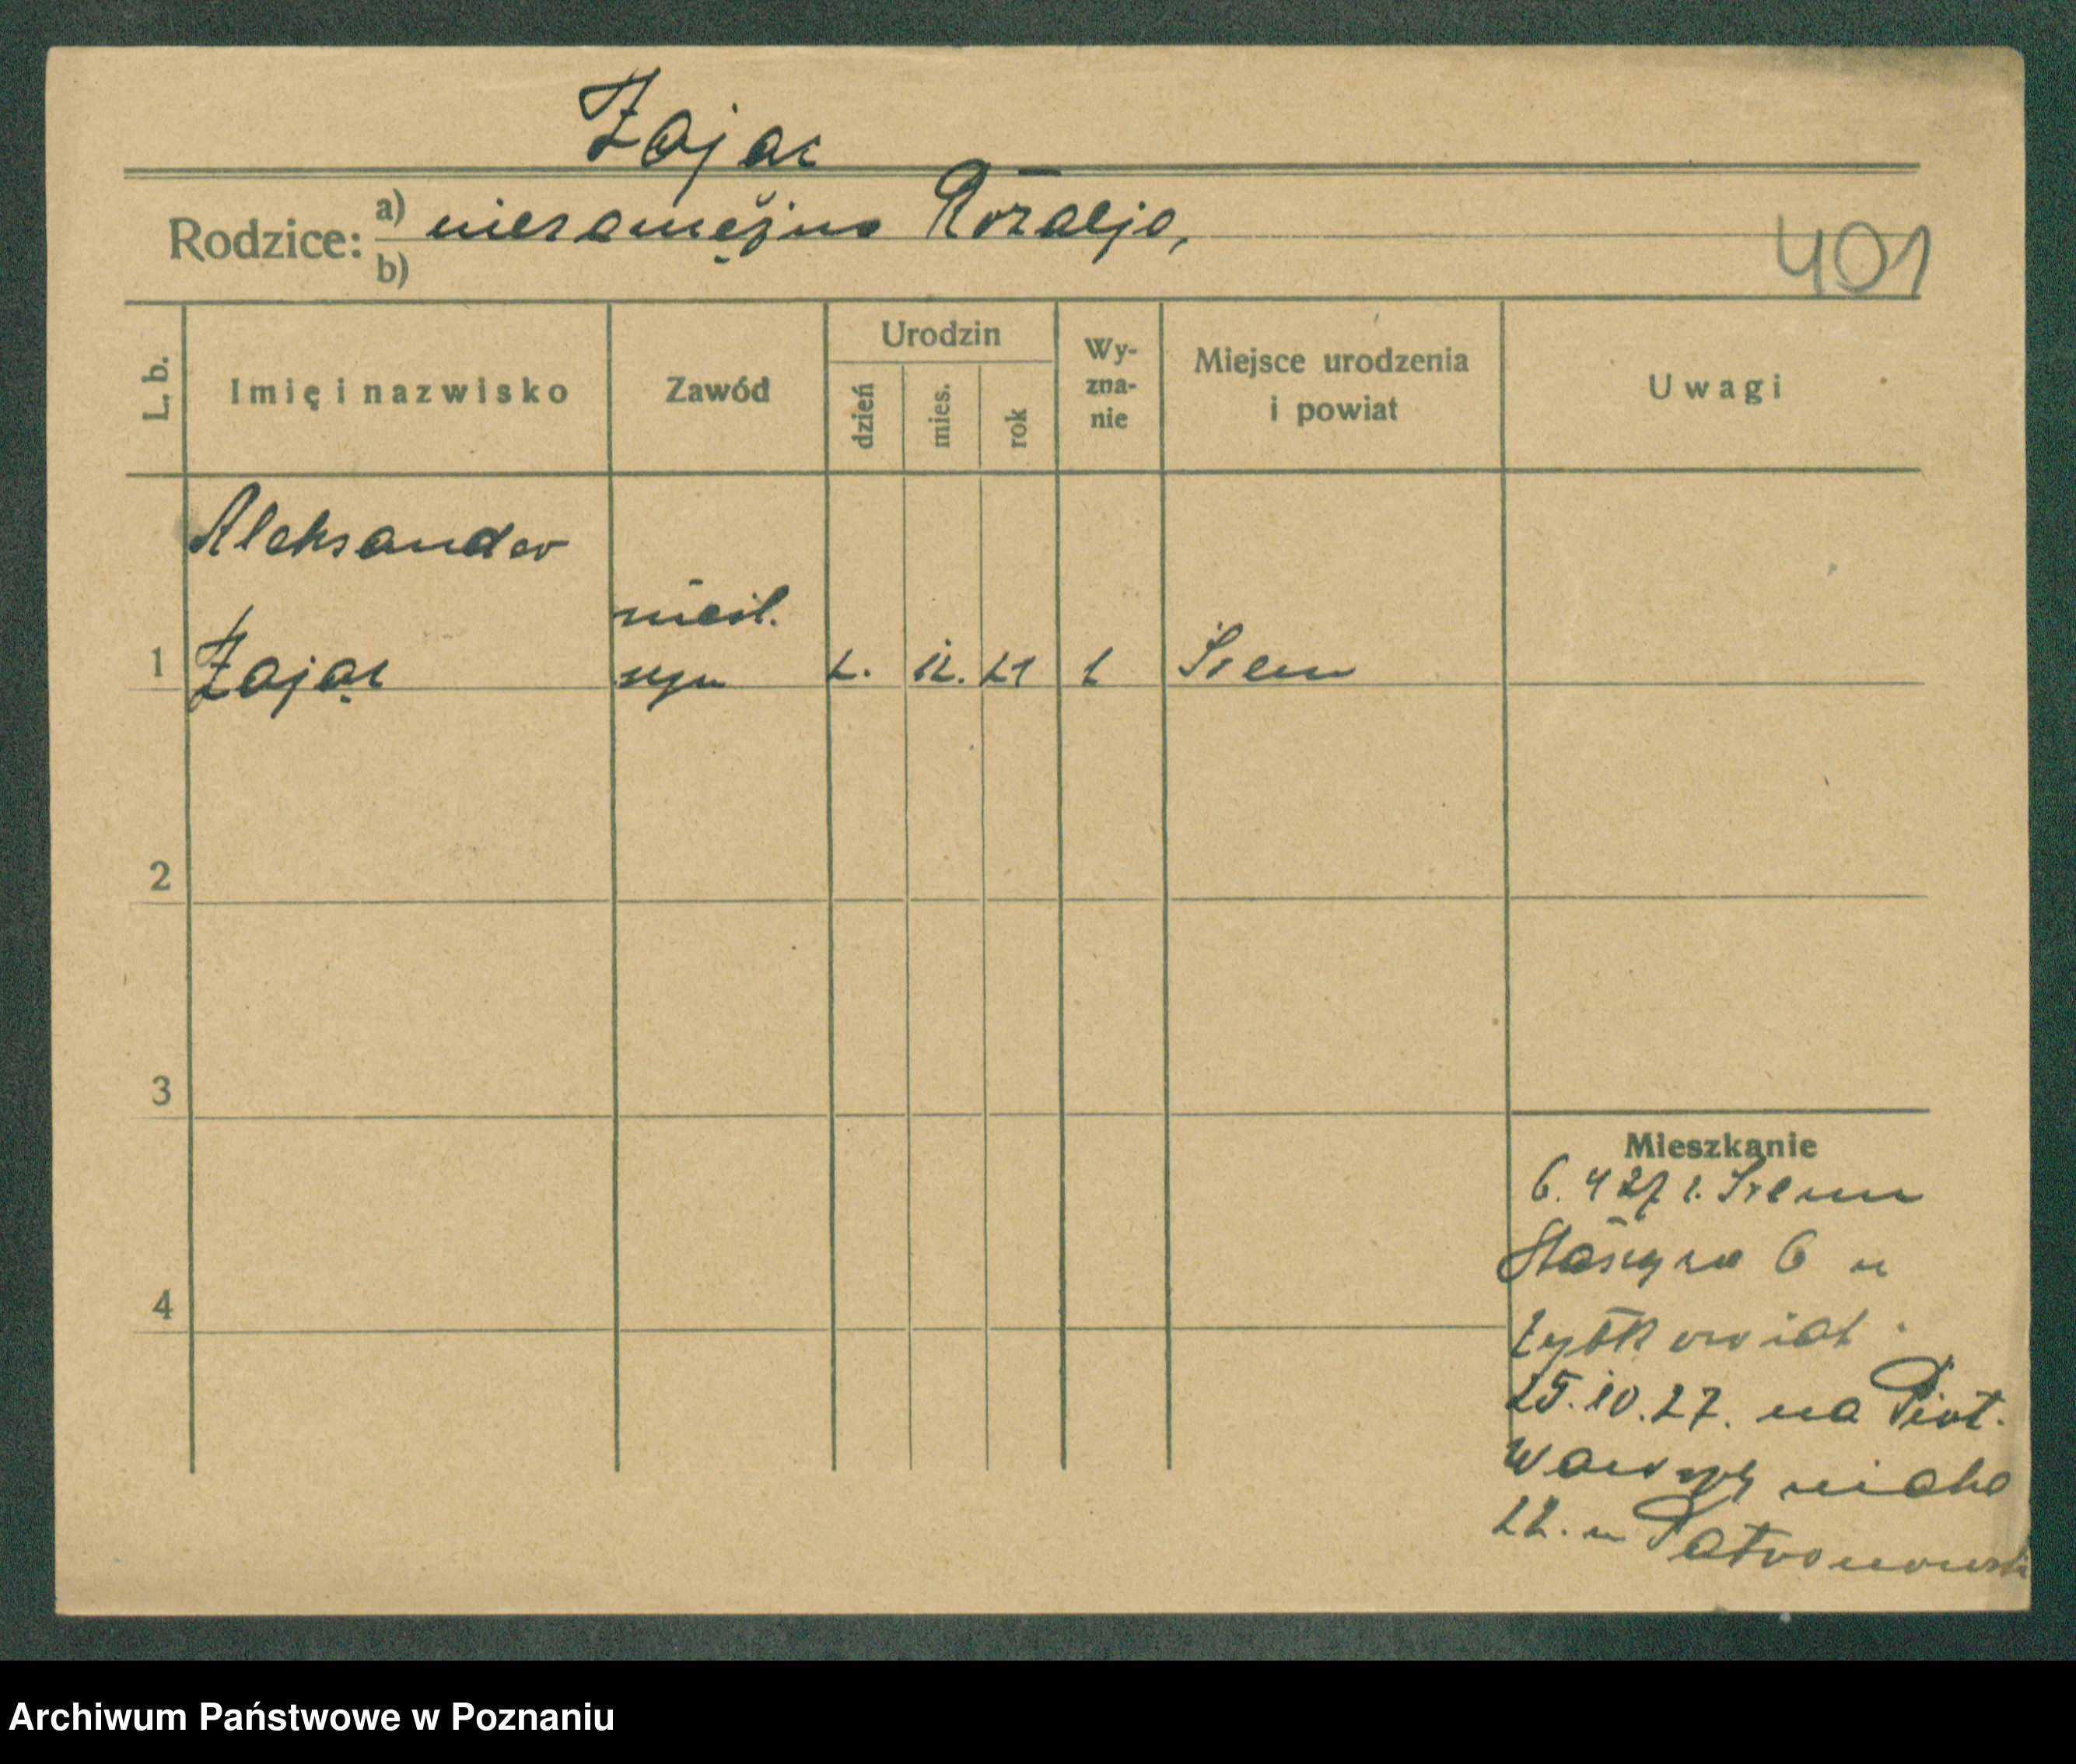 Zając
Rodzice: a) niezamężna Rozalja,
b)
401
L. b. Imię i nazwisko Zawód Urodzin dzień mies. rok Wy-zna-nie Miejsce urodzenia i powiat Uwagi
Aleksander
nieśl.
1 Zając syn 2. 12. 21 k Śrem
2
3
4
Mieszkanie
6. 4 27 z. Śremu
6 u
25. 10. 27. na Piot.
Wawrzyniaka
22. u
Archiwum Państwowe w Poznaniu